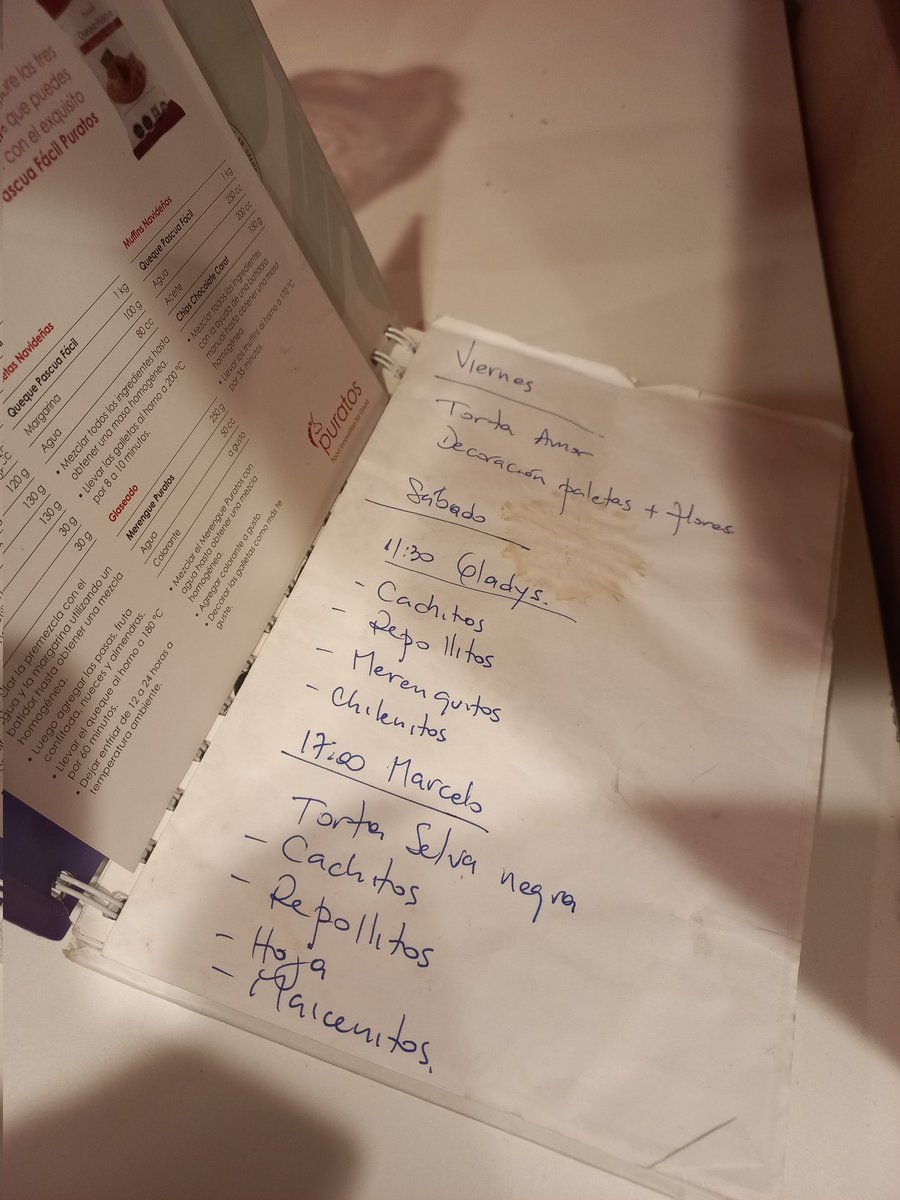 que puedes
con el exquisito
ascua Fácil Puratos
etas Navideñas
Queque Pascua Fácil 1 kg
Margarina 100 g
Agua 80 cc
• Mezclar todos los ingredientes hasta
obtener una masa homogénea.
• Llevar las galletas al horno a 200 °C
por 8 a 10 minutos.
Glaseado
Merengue Puratos 250 g
Agua 50 cc
Colorante a gusto
• Mezclar el Merengue Puratos con
agua hasta obtener una mezcla
homogénea.
• Agregar colorante a gusto.
• Decorar las galletas como más te
guste.
Muffins Navideños
Queque Pascua Fácil 1 kg
Agua 250 cc
Aceite 200 cc
Chips Chocolate Carat 150 g
• Mezclar todos los ingredientes
con la ayuda de una batidora
manual hasta obtener una masa
homogénea.
• Llevar los muffins al horno a 170 °C
por 35 minutos.
120 g
130 g
130 g
30 g
30 g
la premezcla con el
agua y la margarina utilizando un
batidor hasta obtener una mezcla
homogénea.
• Luego agregar las pasas, fruta
confitada, nueces y almendras.
• Llevar el queque al horno a 180 °C
por 60 minutos.
• Dejar enfriar de 12 a 24 horas a
temperatura ambiente.
puratos
Food Innovation for Good
Viernes
Torta Amor
Decoración paletas + flores
Sábado
11:30 Gladys.
- Cachitos
- Repollitos
- Merenguitos
- Chilenitos
17:00 Marcelo
Torta Selva negra
- Cachitos
- Repollitos
- Hoja
- Maicenitos.